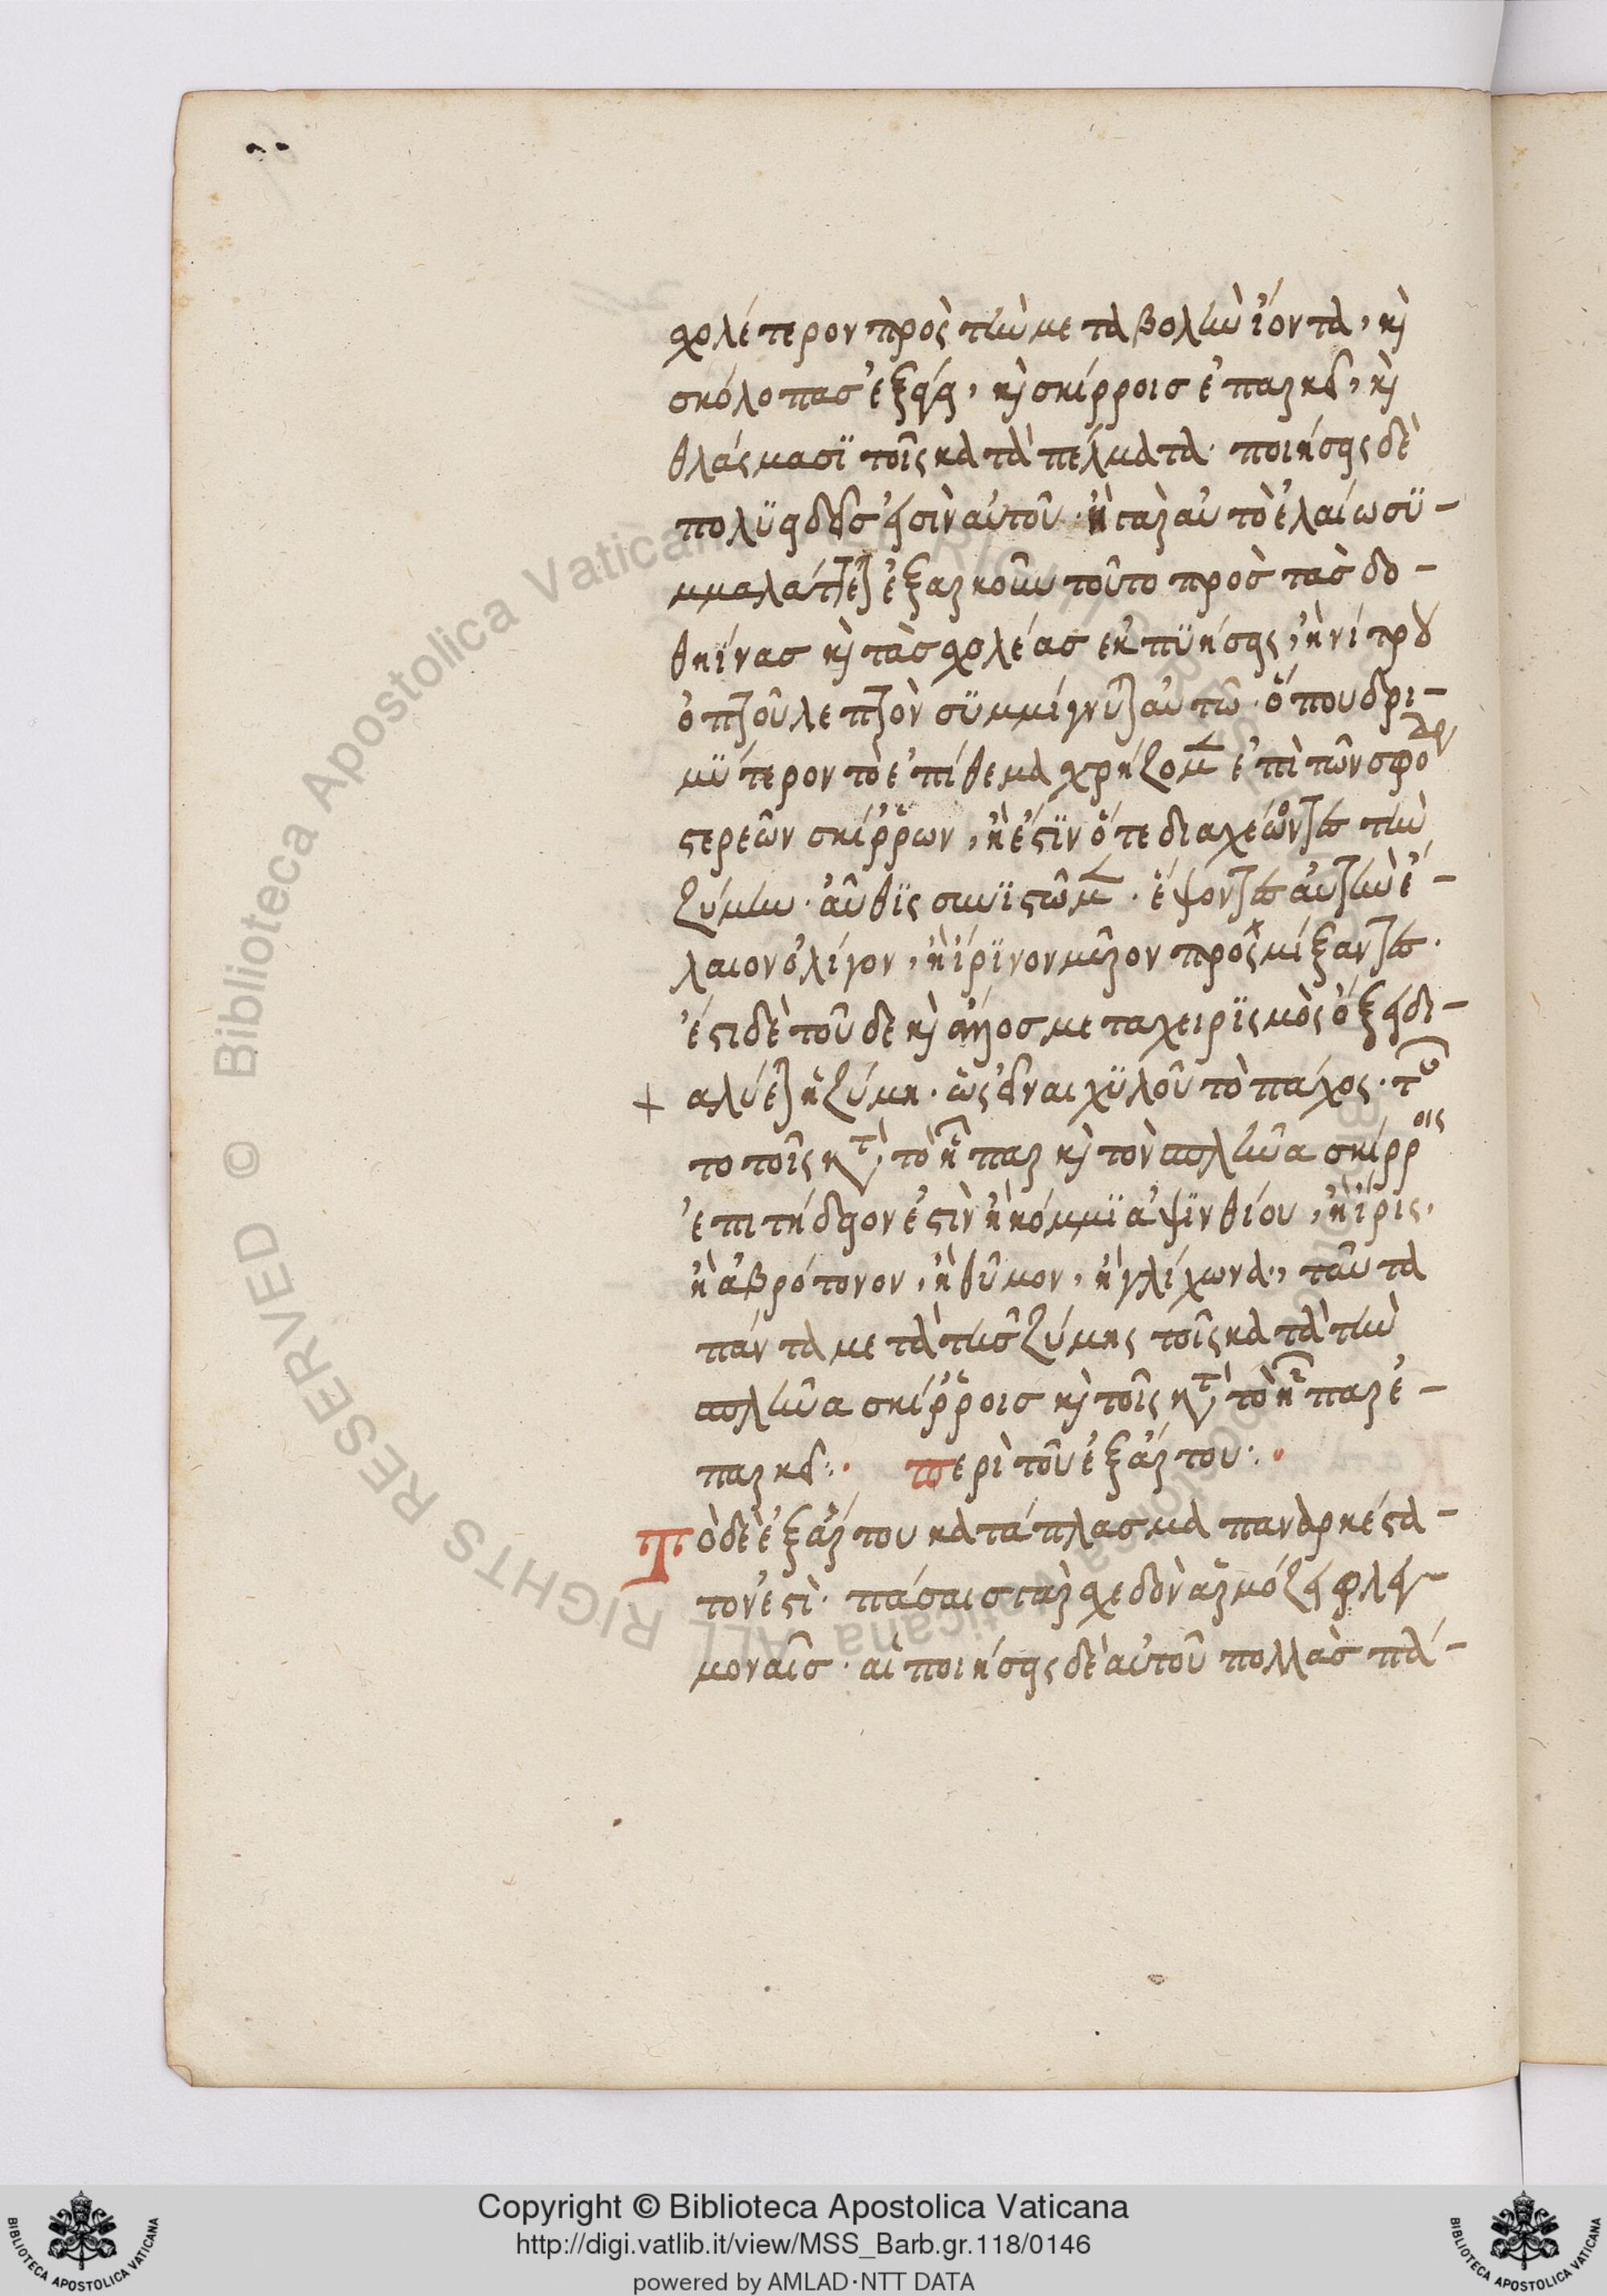 σχολέτερον πρὸς τὴν μεταβολὴν ἰόντα, καὶ
σκόλοπας ἐξάγει, καὶ σκίρροις ἐπαρκεῖ, καὶ
θλάσμασϊ τοῖς κατὰ πέλματα· ποιήσεις δὲ
πολϋειδὲς εἰσὶν αὐτοῦ· ἢ γὰρ αὐτὸ ἐλαίω σϋ-
μμαλάττεται ἐξαρκοῦν τοῦτο πρὸς τὰς δο-
θηίνας καὶ τὰς φολέας ἐκπϋήσεις, ἢ νίτρου
ὀπτοῦ λεπτὸν σϋμμίγνυται αὐτῶ· ὅπου δρι-
μϋτερον τὸ ἐπίθεμα χρήζομεν ἐπὶ τῶν σφοδρ
στερεῶν σκίρρων, ἢ ἔστϊν ὅτε διαχέωντες τὴν
ζύμην· αὖθϊς συνϊστῶμεν· ἕψοντες αὐτὴν ἐ-
λαιον ὀλίγον, ἢ ἴρϊνον μύρον προσμίξαντες·
ἔστι δὲ τοῦδε καὶ ἄλλος μεταχειρϊσμὸς ὄξει δι-
αλύεται ἡ ζύμη· ὡς εἶναι χϋλοῦ τὸ πάχος· τοῦ
το τοῖς κατὰ τὸ ἧπαρ καὶ τὸν σπλῆνα σκίρροις
ἐπιτήδειον ἐστὶν ἢ κόμμϊ ἀψϊνθίου, ἢ ἴρις,
ἢ ἀβρότονον, ἢ θύμον, ἢ γλίχωνα, ταῦτα
πάντα μετὰ τῆς ζύμης τοῖς κατὰ τὴν
σπλῆνα σκίρροις καὶ τοῖς κατὰ τὸ ἧπαρ ἐ-
παρκεῖ:· περὶ τοῦ ἐξάρτου:·
Τὸ δὲ ἐξάρτου κατάπλασμα πανδρκέστα-
τον ἐστὶ· πάσαις γὰρ σχεδὸν ἁρμόζει φλεγ-
μοναῖς· αἱ ποιήσεις δὲ αὐτοῦ πολλὰς πα-
Copyright © Biblioteca Apostolica Vaticana
http://digi.vatlib.it/view/MSS_Barb.gr.118/0146
powered by AMLAD·NTT DATA
BIBLIOTECA APOSTOLICA VATICANA
BIBLIOTECA APOSTOLICA VATICANA
© Biblioteca Apostolica Vaticana ALL RIGHTS RESERVED